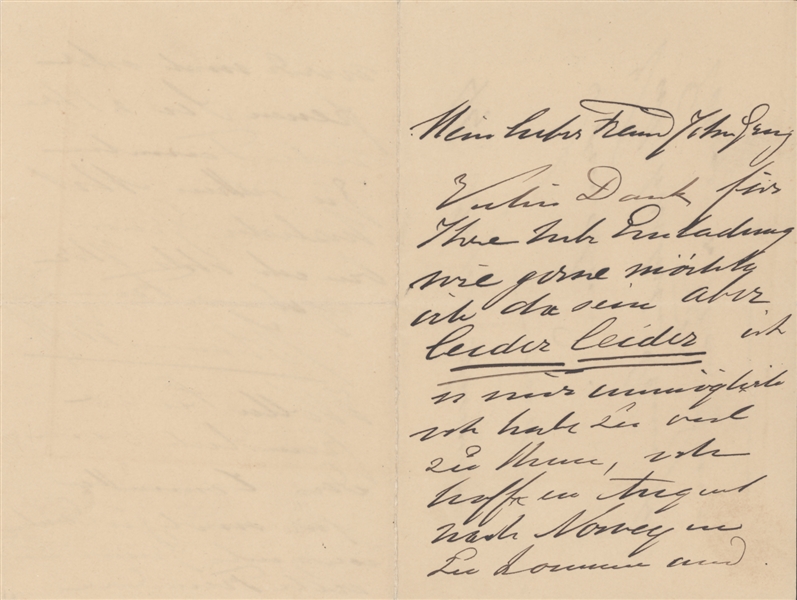 Mein lieber Freund
Vielen Dank für
Ihre liebe Einladung
wie gerne möchte
ich da sein aber
leider leider ist
es mir unmöglich
ich habe zu viel
zu thun, ich
hoffe im August
nach Norwegen
zu kommen und